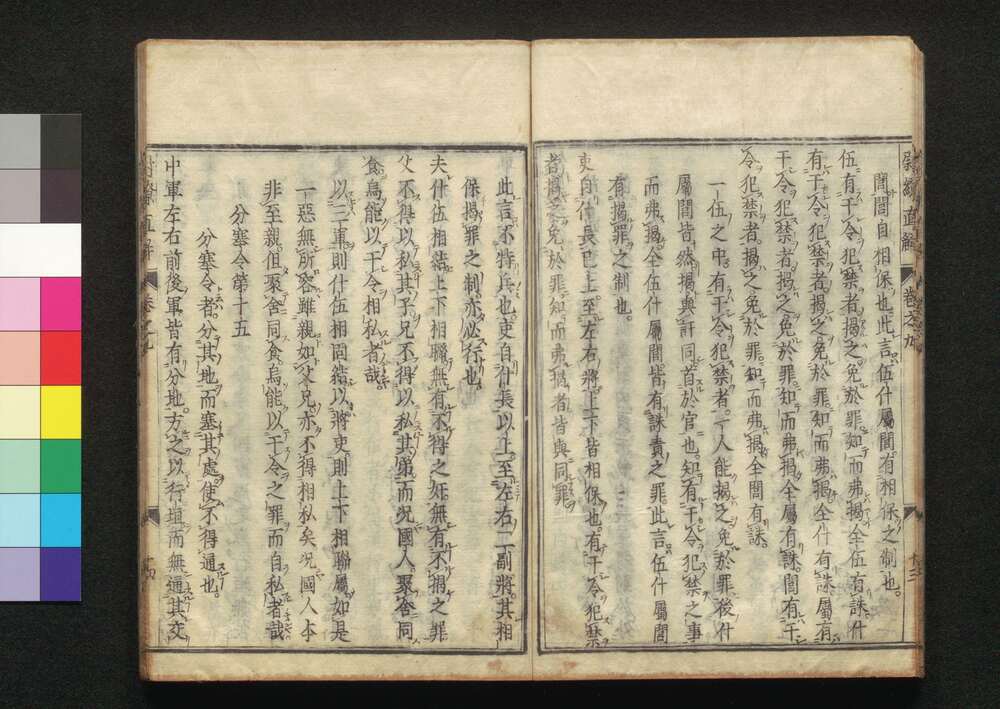 尉繚直解 卷之九 十三
閭閻自相保也此言伍什屬閭有相保之制也
伍有干令犯禁者揭之免於罪知而弗揭全伍有誅什
有干令犯禁者揭之免於罪知而弗揭全什有誅屬有
干令犯禁者揭之免於罪知而弗揭全屬有誅閭有干
令犯禁者揭之免於罪知而弗揭全閭有誅
一伍之中有干令犯禁者一人能揭之免於罪後什
屬閭皆然揭與訐同首於官也知有干令犯禁之事
而弗揭全伍什屬閭皆有誅責之罪此言伍什屬閭
有揭罪之制也
吏自什長已上至左右將上下皆相保也有干令犯禁
者揭之免於罪知而弗揭者皆與同罪
此言不特兵也吏自什長以上至左右二副將其相
保揭罪之制亦必行也
夫什伍相結上下相聯無有不得之奸無有不揭之罪
父不得以私其子兄不得以私其弟而況國人聚舍同
食烏能以干令相私者哉
以三軍則什伍相固結以將吏則上下相聯屬如是
一惡無所容雖親如父兄亦不得相私矣況國人本
非至親但聚舍同食烏能以干令之罪而自私者哉
分塞令第十五
分塞令者分其地而塞其處使不得通也
中軍左右前後軍皆有分地方之以行垣而無通其交
尉繚直解 卷之九 十四